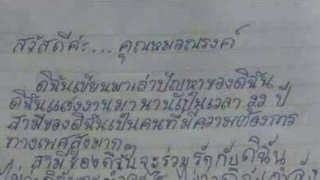 สวัสดีค่ะ... คุณหมอณรงค์
ดิฉันเขียนมาเล่าปัญหาของดิฉัน
ดิฉันแต่งงานมา นานเป็นเวลา ปี
สามีของดิฉันเป็นคนที่มีความต้องการ
ทางเพศสูงมาก
สามีของดิฉันจะร่วมรักกับดิฉัน